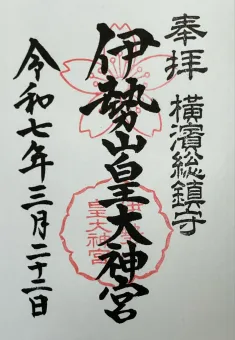 奉拝
横濱総鎮守
伊勢山皇大神宮
令和七年三月二十二日
皇大神宮